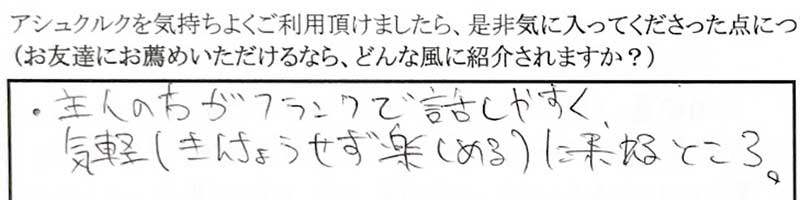 アシュクルクを気持ちよくご利用頂けましたら、是非気に入ってくださった点につ
(お友達にお薦めいただけるなら、どんな風に紹介されますか?)
・主人の方がフランクで話しやすく、
気軽(きんちょうせず楽しめる)に来れるところ。